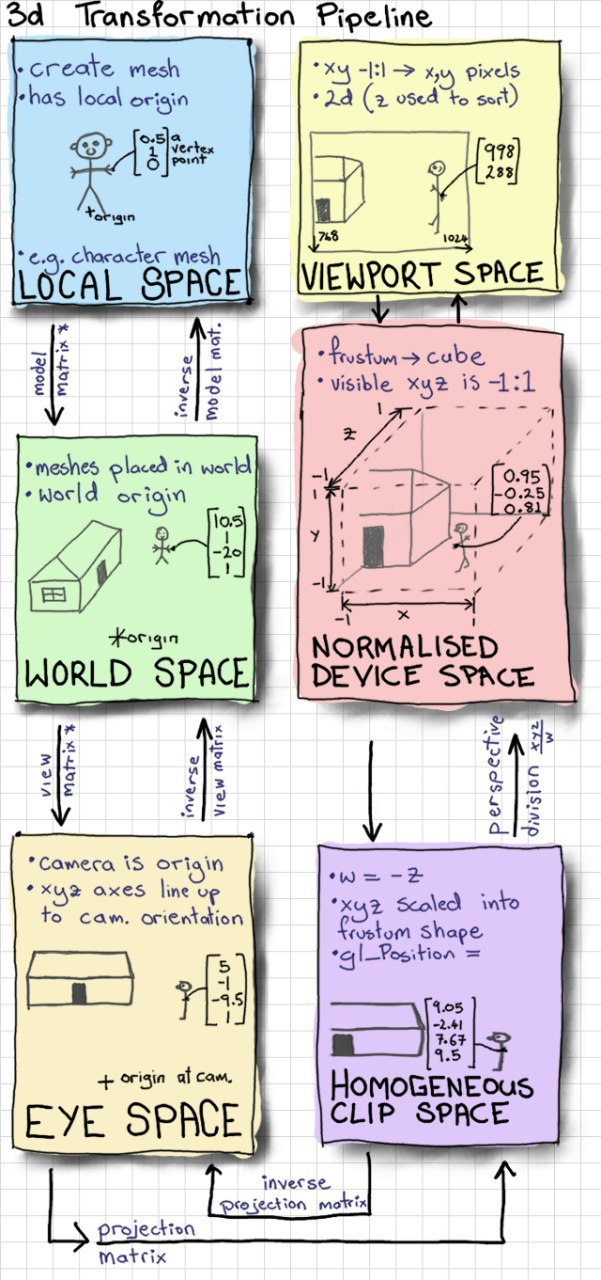 3d Transformation Pipeline
• create mesh
• has local origin
[0.5
1
0]
a
vertex
point
+origin
• e.g. character mesh
LOCAL SPACE
model
matrix *
inverse
model mat.
• meshes placed in world
• world origin
[10.5
1
-20
1]
*origin
WORLD SPACE
view
matrix *
inverse
view matrix
• camera is origin
• xyz axes line up
to cam. orientation
[5
-1
-9.5
1]
+ origin at cam.
EYE SPACE
projection
matrix
inverse
projection matrix
• w = -z
• xyz scaled into
frustum shape
• gl_Position =
[9.05
-2.41
7.67
9.5]
HOMOGENEOUS
CLIP SPACE
perspective
division xyz/w
• frustum → cube
• visible xyz is -1:1
1
z
-1
1
y
-1
-1
x
[0.95
-0.25
0.81]
NORMALISED
DEVICE SPACE
• xy -1:1 → x,y pixels
• 2d (z used to sort)
[998
288]
768
1024
VIEWPORT SPACE